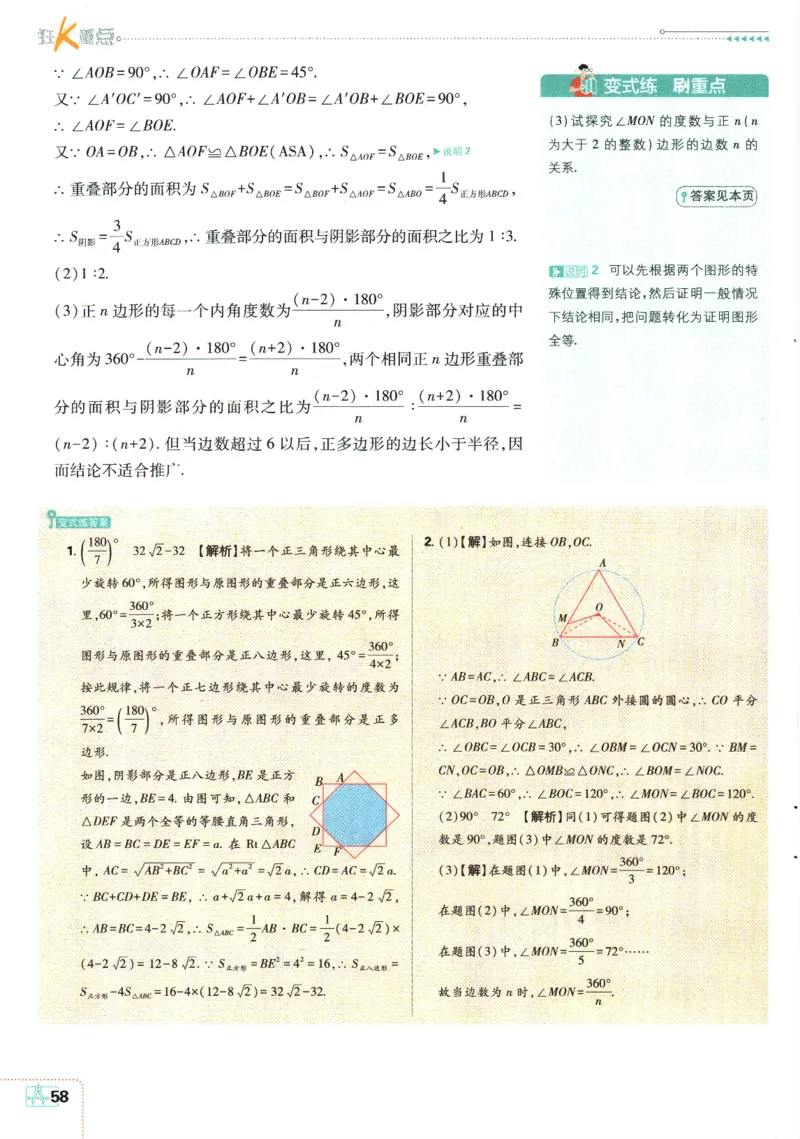 狂K重点
∵ ∠AOB=90°,∴ ∠OAF=∠OBE=45°.
又∵ ∠A′OC′=90°,∴ ∠AOF+∠A′OB=∠A′OB+∠BOE=90°,
∴ ∠AOF=∠BOE.
又∵ OA=OB,∴ △AOF≌△BOE(ASA),∴ S△AOF=S△BOE, ▶说明2
∴ 重叠部分的面积为 S△BOF+S△BOE=S△BOF+S△AOF=S△ABO=1/4 S正方形ABCD,
∴ S阴影=3/4 S正方形ABCD,∴ 重叠部分的面积与阴影部分的面积之比为 1∶3.
(2)1∶2.
(3)正 n 边形的每一个内角度数为 (n-2)·180°/n,阴影部分对应的中
心角为 360°-(n-2)·180°/n=(n+2)·180°/n,两个相同正 n 边形重叠部
分的面积与阴影部分的面积之比为 (n-2)·180°/n∶(n+2)·180°/n=
(n-2)∶(n+2). 但当边数超过 6 以后,正多边形的边长小于半径,因
而结论不适合推广.
变式练 刷重点
(3)试探究∠MON 的度数与正 n(n
为大于 2 的整数)边形的边数 n 的
关系.
答案见本页
说明2 可以先根据两个图形的特
殊位置得到结论,然后证明一般情况
下结论相同,把问题转化为证明图形
全等.
变式练答案
1. (180/7)° 32√2-32 【解析】将一个正三角形绕其中心最
少旋转 60°,所得图形与原图形的重叠部分是正六边形,这
里,60°=360°/3×2;将一个正方形绕其中心最少旋转 45°,所得
图形与原图形的重叠部分是正八边形,这里, 45°=360°/4×2;
按此规律,将一个正七边形绕其中心最少旋转的度数为
360°/7×2=(180/7)°,所得图形与原图形的重叠部分是正多
边形.
如图,阴影部分是正八边形,BE 是正方
形的一边,BE=4. 由图可知,△ABC 和
△DEF 是两个全等的等腰直角三角形,
设 AB=BC=DE=EF=a. 在 Rt△ABC
B A
C
D
E F
中, AC=√AB²+BC²=√a²+a²=√2a,∴ CD=AC=√2a.
∵ BC+CD+DE=BE, ∴ a+√2a+a=4,解得 a=4-2√2,
∴AB=BC=4-2√2,∴ S△ABC=1/2 AB·BC=1/2(4-2√2)×
(4-2√2)=12-8√2. ∵ S正方形=BE²=4²=16,∴ S正八边形=
S正方形-4S△ABC=16-4×(12-8√2)=32√2-32.
2. (1)【解】如图,连接 OB,OC.
A
O
M
B N C
∵ AB=AC,∴ ∠ABC=∠ACB.
∵ OC=OB,O 是正三角形 ABC 外接圆的圆心,∴ CO 平分
∠ACB,BO 平分∠ABC,
∴ ∠OBC=∠OCB=30°,∴ ∠OBM=∠OCN=30°. ∵ BM=
CN,OC=OB,∴ △OMB≌△ONC,∴ ∠BOM=∠NOC.
∵ ∠BAC=60°,∴ ∠BOC=120°,∴ ∠MON=∠BOC=120°.
(2)90° 72° 【解析】同(1)可得题图(2)中∠MON 的度
数是 90°,题图(3)中∠MON 的度数是 72°.
(3)【解】在题图(1)中,∠MON=360°/3=120°;
在题图(2)中,∠MON=360°/4=90°;
在题图(3)中,∠MON=360°/5=72°……
故当边数为 n 时,∠MON=360°/n.
58